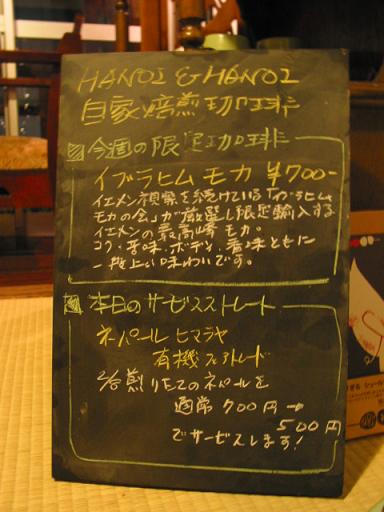 HANOI & HANOI
自家焙煎珈琲
今週の限定珈琲
イブラヒム モカ ¥700-
イエメン
モカの会が厳選し限定輸入する
イエメンの最高峰モカ。
コク・苦味・ボディ・香味ともに
一段上の味わいです。
本日のサービスストレート
ネパール ヒマラヤ
有機フェアトレード
2/6煎りたてのネパールを
通常700円→
500円
でサービスします!